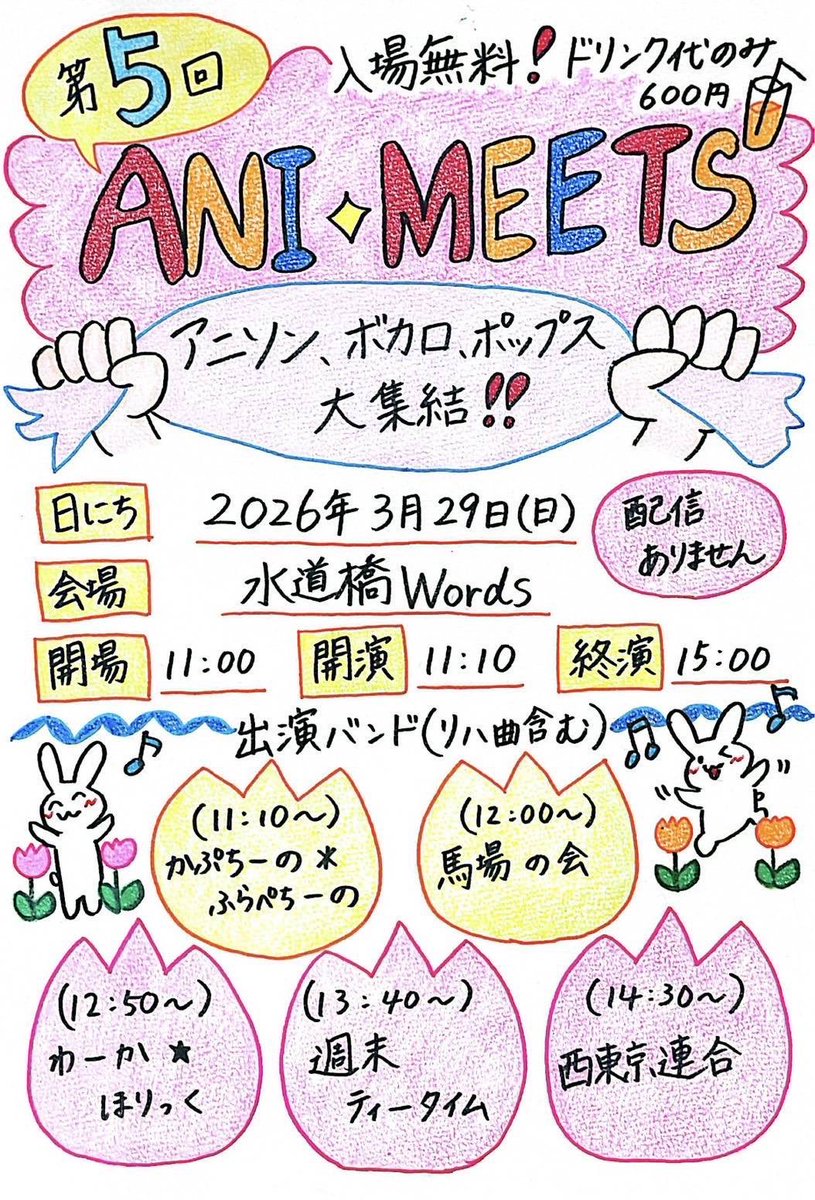 第5回
入場無料！ドリンク代のみ
600円
ANI✦MEETS
アニソン、ボカロ、ポップス
大集結!!
日にち 2026年3月29日(日)
配信
ありません
会場 水道橋Words
開場 11:00 開演 11:10 終演 15:00
出演バンド(リハ曲含む)
(11:10〜)
かぷちーの＊
ふらぺちーの
(12:00〜)
馬場の会
(12:50〜)
わーか★
ほりっく
(13:40〜)
週末
ティータイム
(14:30〜)
西東京連合